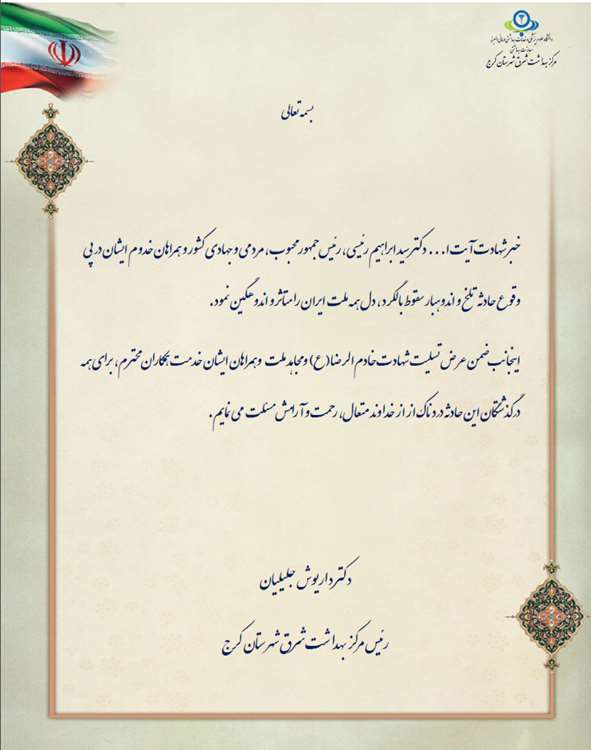 دانشگاه علوم پزشکی و خدمات بهداشتی درمانی البرز
معاونت بهداشتی
مرکز بهداشت شرق شهرستان کرج
بسمه تعالی
خبر شهادت آیت ا... دکتر سید ابراهیم رئیسی، رئیس جمهور محبوب، مردمی و جهادی کشور و همراهان خدوم ایشان در پی
وقوع حادثه تلخ و اندوهبار سقوط بالگرد، دل همه ملت ایران را متاثر و اندوهگین نمود.
اینجانب ضمن عرض تسلیت شهادت خادم الرضا(ع) و مجاهد ملت و همراهان ایشان خدمت همکاران محترم، برای همه
درگذشتگان این حادثه دردناک از از خداوند متعال، رحمت و آرامش مسئلت می نمایم.
دکتر داریوش جلیلیان
رئیس مرکز بهداشت شرق شهرستان کرج